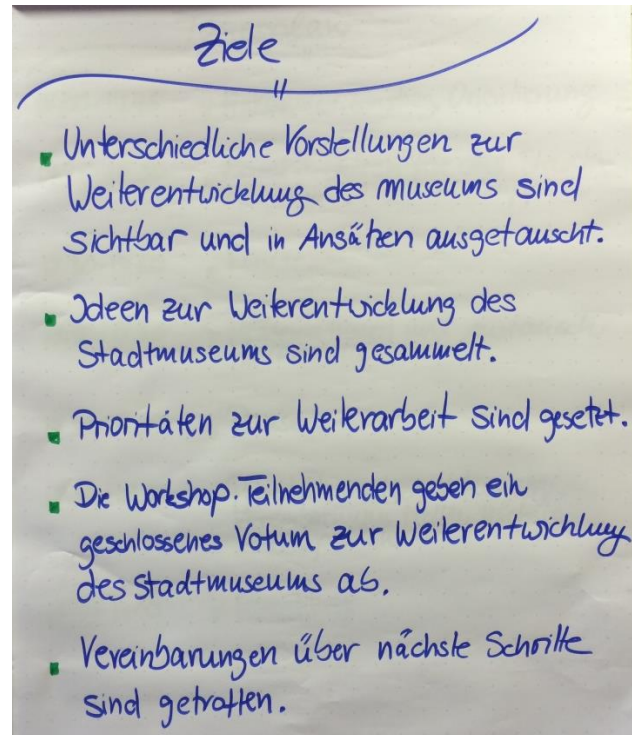 Ziele
Unterschiedliche Vorstellungen zur
Weiterentwicklung des museums sind
sichtbar und in Ansätzen ausgetauscht.
Ideen zur Weiterentwicklung des
Stadtmuseums sind gesammelt.
Prioritäten zur Weiterarbeit sind gesetzt.
Die Workshop-Teilnehmenden geben ein
geschlossenes Votum zur Weiterentwicklung
des Stadtmuseums ab.
Vereinbarungen über nächste Schritte
sind getroffen.